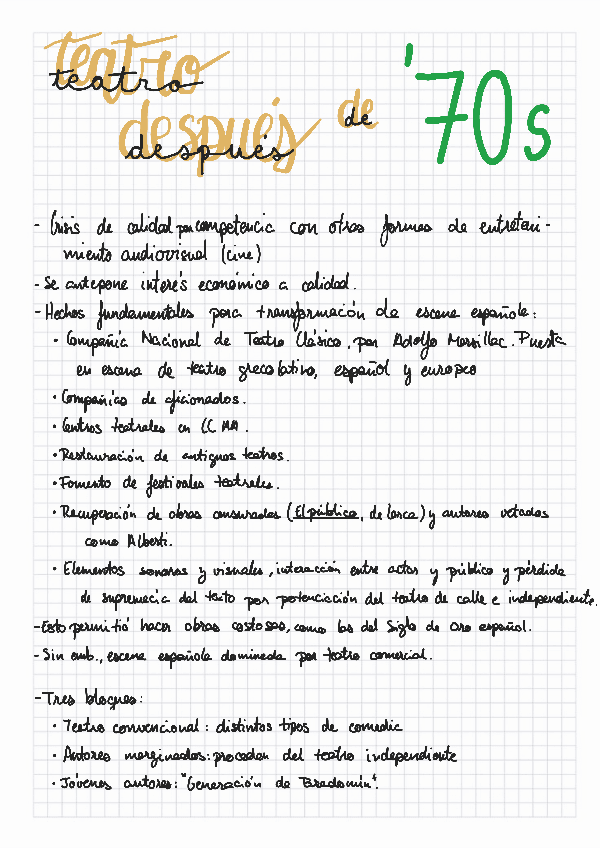 teatro
después de '70s
- Crisis de calidad por competencia con otras formas de entreteni-
miento audiovisual (cine)
- Se antepone interés económico a calidad.
- Hechos fundamentales para transformación de escena española:
· Compañía Nacional de Teatro Clásico, por Adolfo Marsillac. Puesta
en escena de teatro grecolatino, español y europeo
· Compañías de aficionados.
· Centros teatrales en CC AA.
· Restauración de antiguos teatros.
· Fomento de festivales teatrales.
· Recuperación de obras censuradas (El público, de Lorca) y autores vetados
como Alberti.
· Elementos sonoros y visuales, interacción entre actor y público y pérdida
de supremacía del texto por potenciación del teatro de calle e independiente.
- Esto permitió hacer obras costosas, como las del Siglo de Oro español.
- Sin emb., escena española dominada por teatro comercial.
- Tres bloques:
· Teatro convencional: distintos tipos de comedia
· Autores marginados: proceden del teatro independiente
· Jóvenes autores: "Generación de Bradomín".